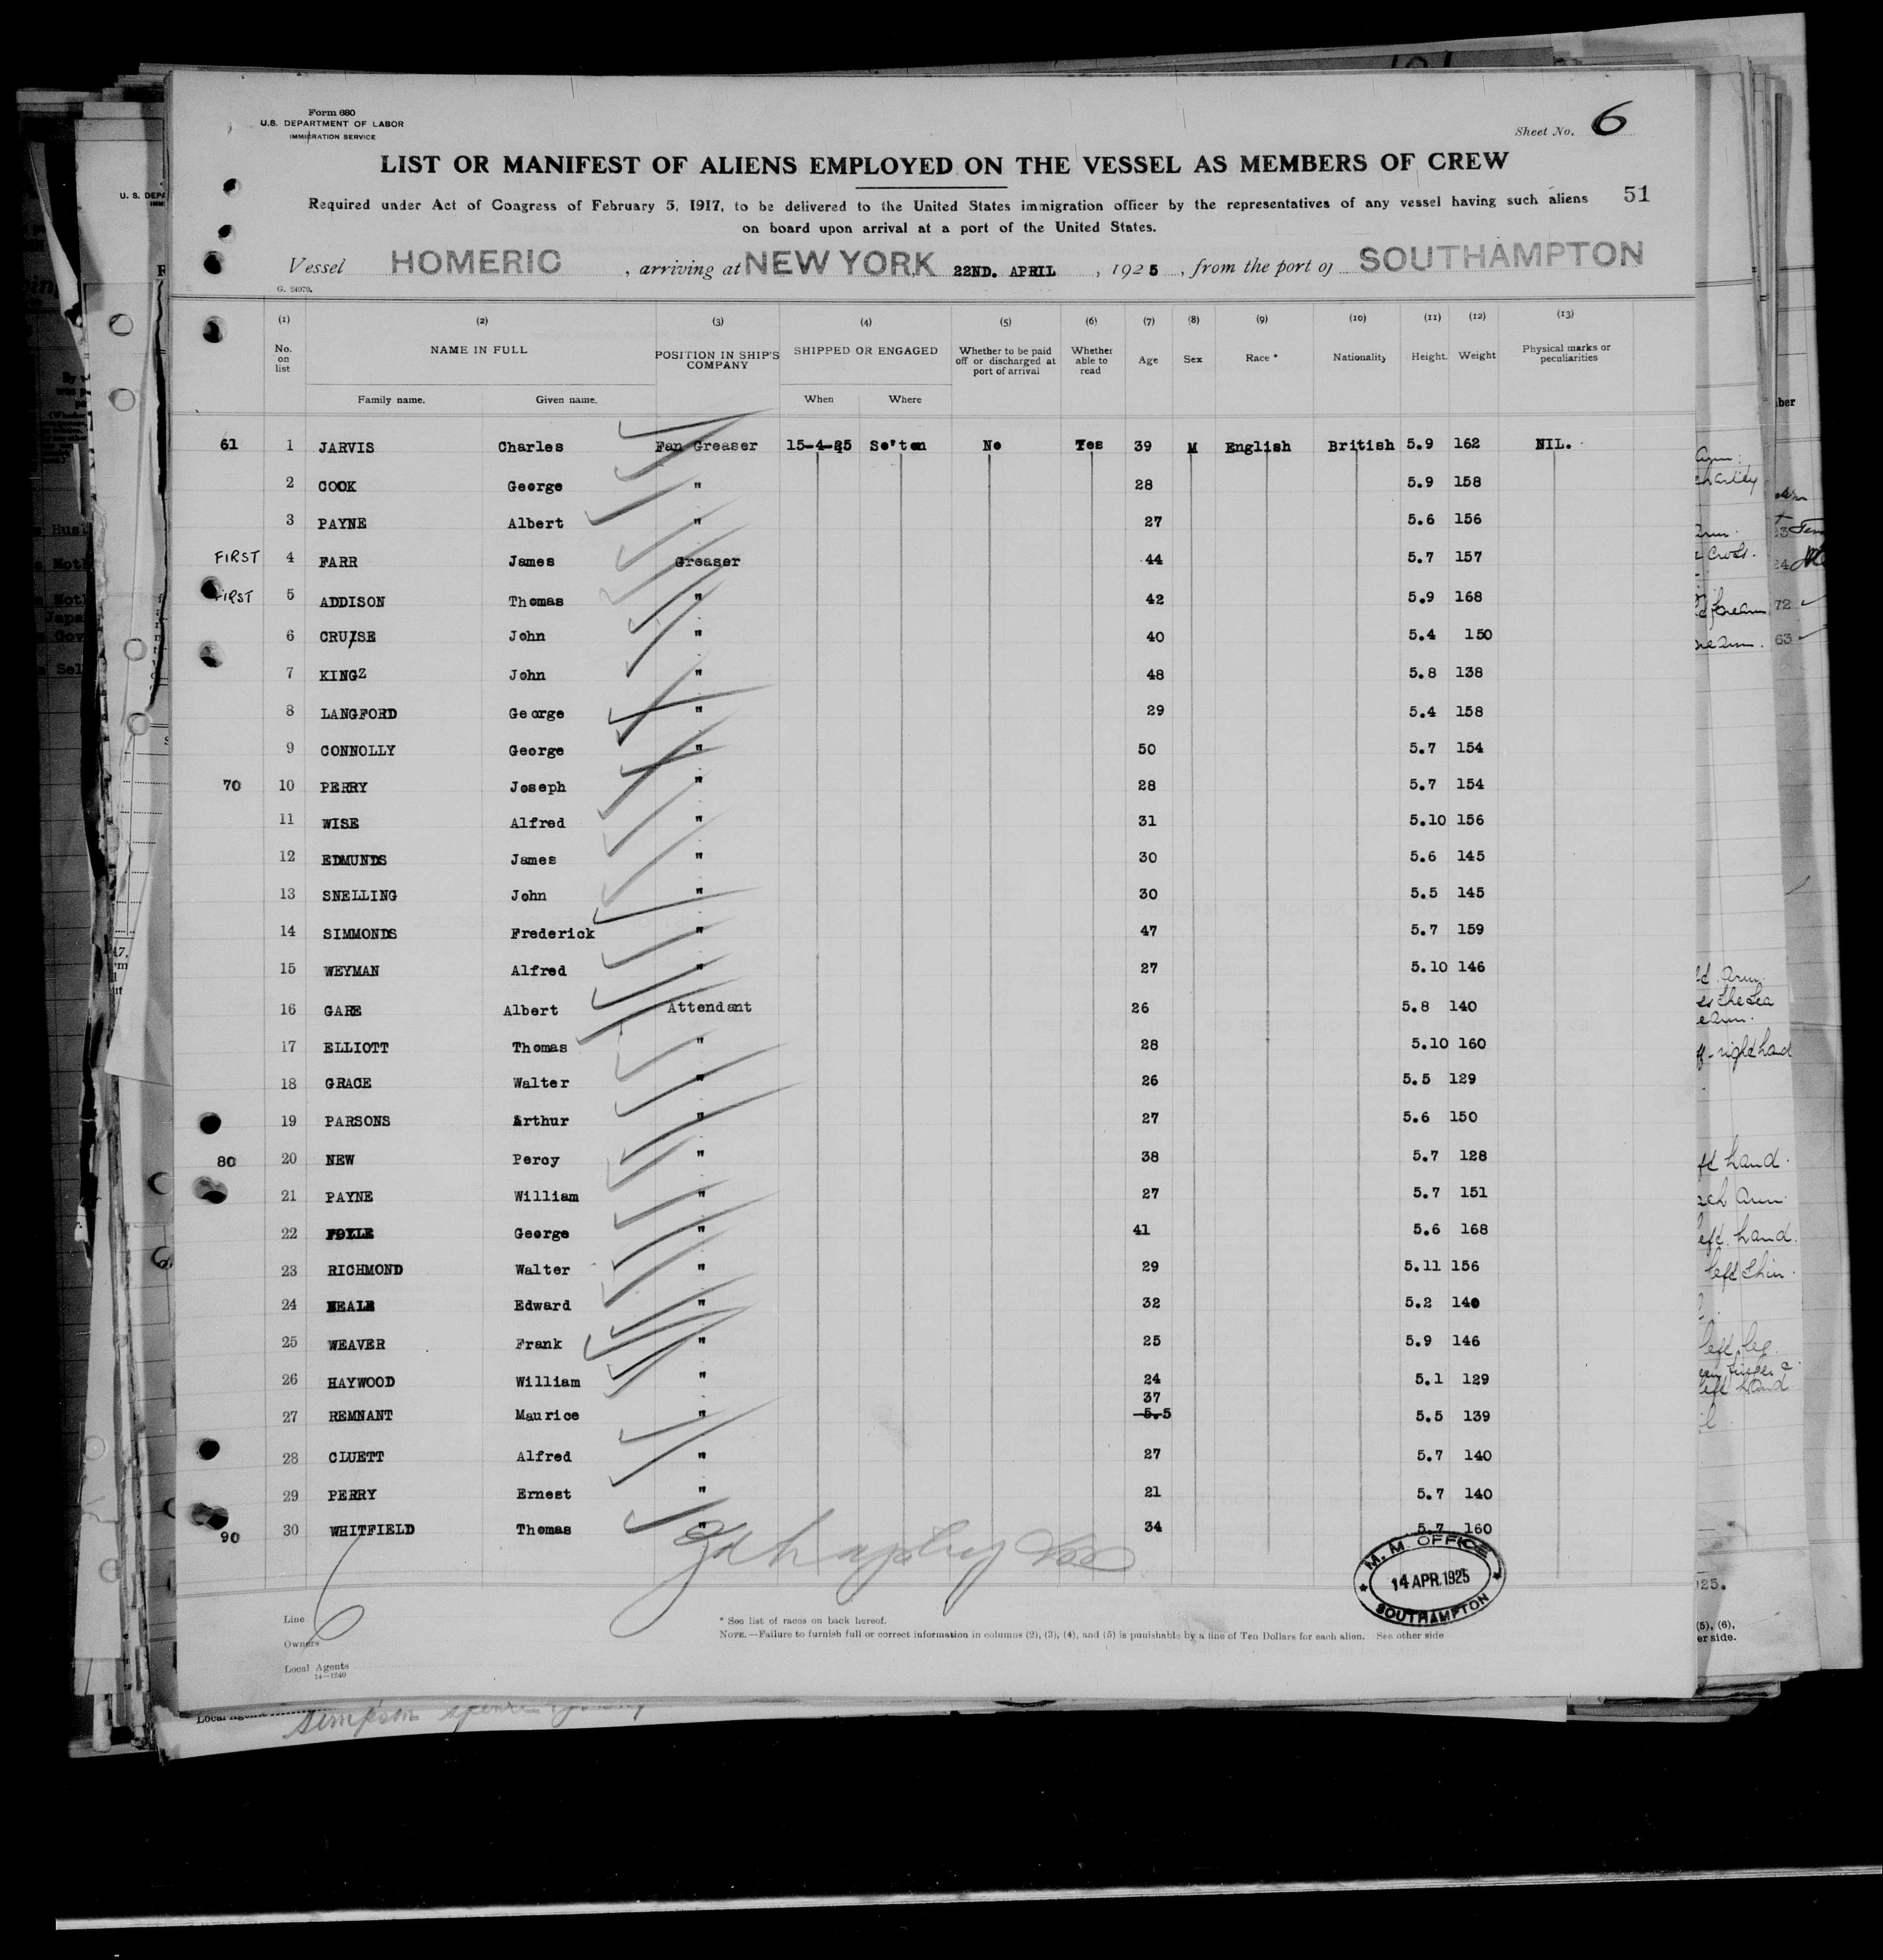 Form 680
U.S. DEPARTMENT OF LABOR
IMMIGRATION SERVICE
Sheet No. 6
LIST OR MANIFEST OF ALIENS EMPLOYED ON THE VESSEL AS MEMBERS OF CREW
51
Required under Act of Congress of February 5, 1917, to be delivered to the United States immigration officer by the representatives of any vessel having such aliens
on board upon arrival at a port of the United States.
Vessel HOMERIC, arriving at NEW YORK 22ND. APRIL, 1925, from the port of SOUTHAMPTON
G. 24979.
(1) (2) (3) (4) (5) (6) (7) (8) (9) (10) (11) (12) (13)
No. on list NAME IN FULL POSITION IN SHIP'S COMPANY SHIPPED OR ENGAGED Whether to be paid off or discharged at port of arrival Whether able to read Age Sex Race * Nationality Height. Weight Physical marks or peculiarities
Family name. Given name. When Where
61 1 JARVIS Charles Fan Greaser 15-4-25 So'ton No Yes 39 M English British 5.9 162 NIL.
2 COOK George " 28 5.9 158
3 PAYNE Albert " 27 5.6 156
FIRST 4 FARR James Greaser 44 5.7 157
FIRST 5 ADDISON Thomas " 42 5.9 168
6 CRUISE John " 40 5.4 150
7 KINGZ John " 48 5.8 138
8 LANGFORD George " 29 5.4 158
9 CONNOLLY George " 50 5.7 154
70 10 PERRY Joseph " 28 5.7 154
11 WISE Alfred " 31 5.10 156
12 EDMUNDS James " 30 5.6 145
13 SNELLING John " 30 5.5 145
14 SIMMONDS Frederick " 47 5.7 159
15 WEYMAN Alfred " 27 5.10 146
16 GARE Albert Attendant 26 5.8 140
17 ELLIOTT Thomas " 28 5.10 160
18 GRACE Walter " 26 5.5 129
19 PARSONS Arthur " 27 5.6 150
80 20 NEW Percy " 38 5.7 128
21 PAYNE William " 27 5.7 151
22 FOYLE George " 41 5.6 168
23 RICHMOND Walter " 29 5.11 156
24 NEALE Edward " 32 5.2 140
25 WEAVER Frank " 25 5.9 146
26 HAYWOOD William " 24 5.1 129
27 REMNANT Maurice " 37 5.5 5.5 139
28 CLUETT Alfred " 27 5.7 140
29 PERRY Ernest " 21 5.7 140
90 30 WHITFIELD Thomas " 34 5.7 160
M. M. OFFICE
14 APR. 1925
SOUTHAMPTON
Line
Owners
Local Agents
14—1240
* See list of races on back hereof.
NOTE.—Failure to furnish full or correct information in columns (2), (3), (4), and (5) is punishable by a fine of Ten Dollars for each alien. See other side